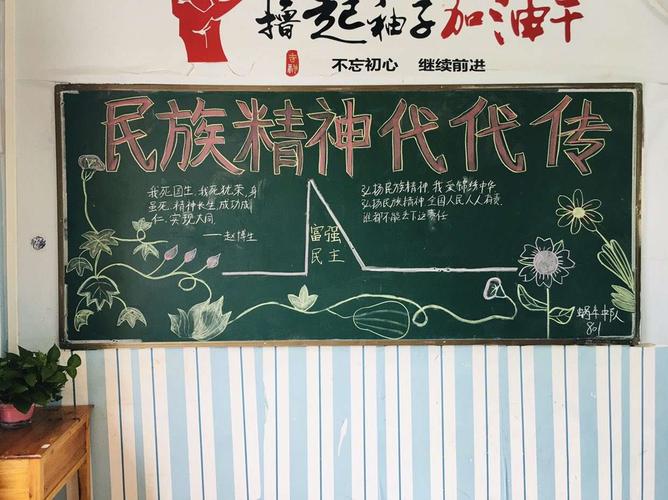 撸起袖子加油干
不忘初心 继续前进
民族精神代代传
我死国生,我死犹荣,身
虽死,精神长生,成功成
仁,实现大同
——赵博生
富强
民主
弘扬民族精神,我爱锦绣中华
弘扬民族精神,全国人民人人有责
谁都不能丢下这责任
蜗牛中队
801